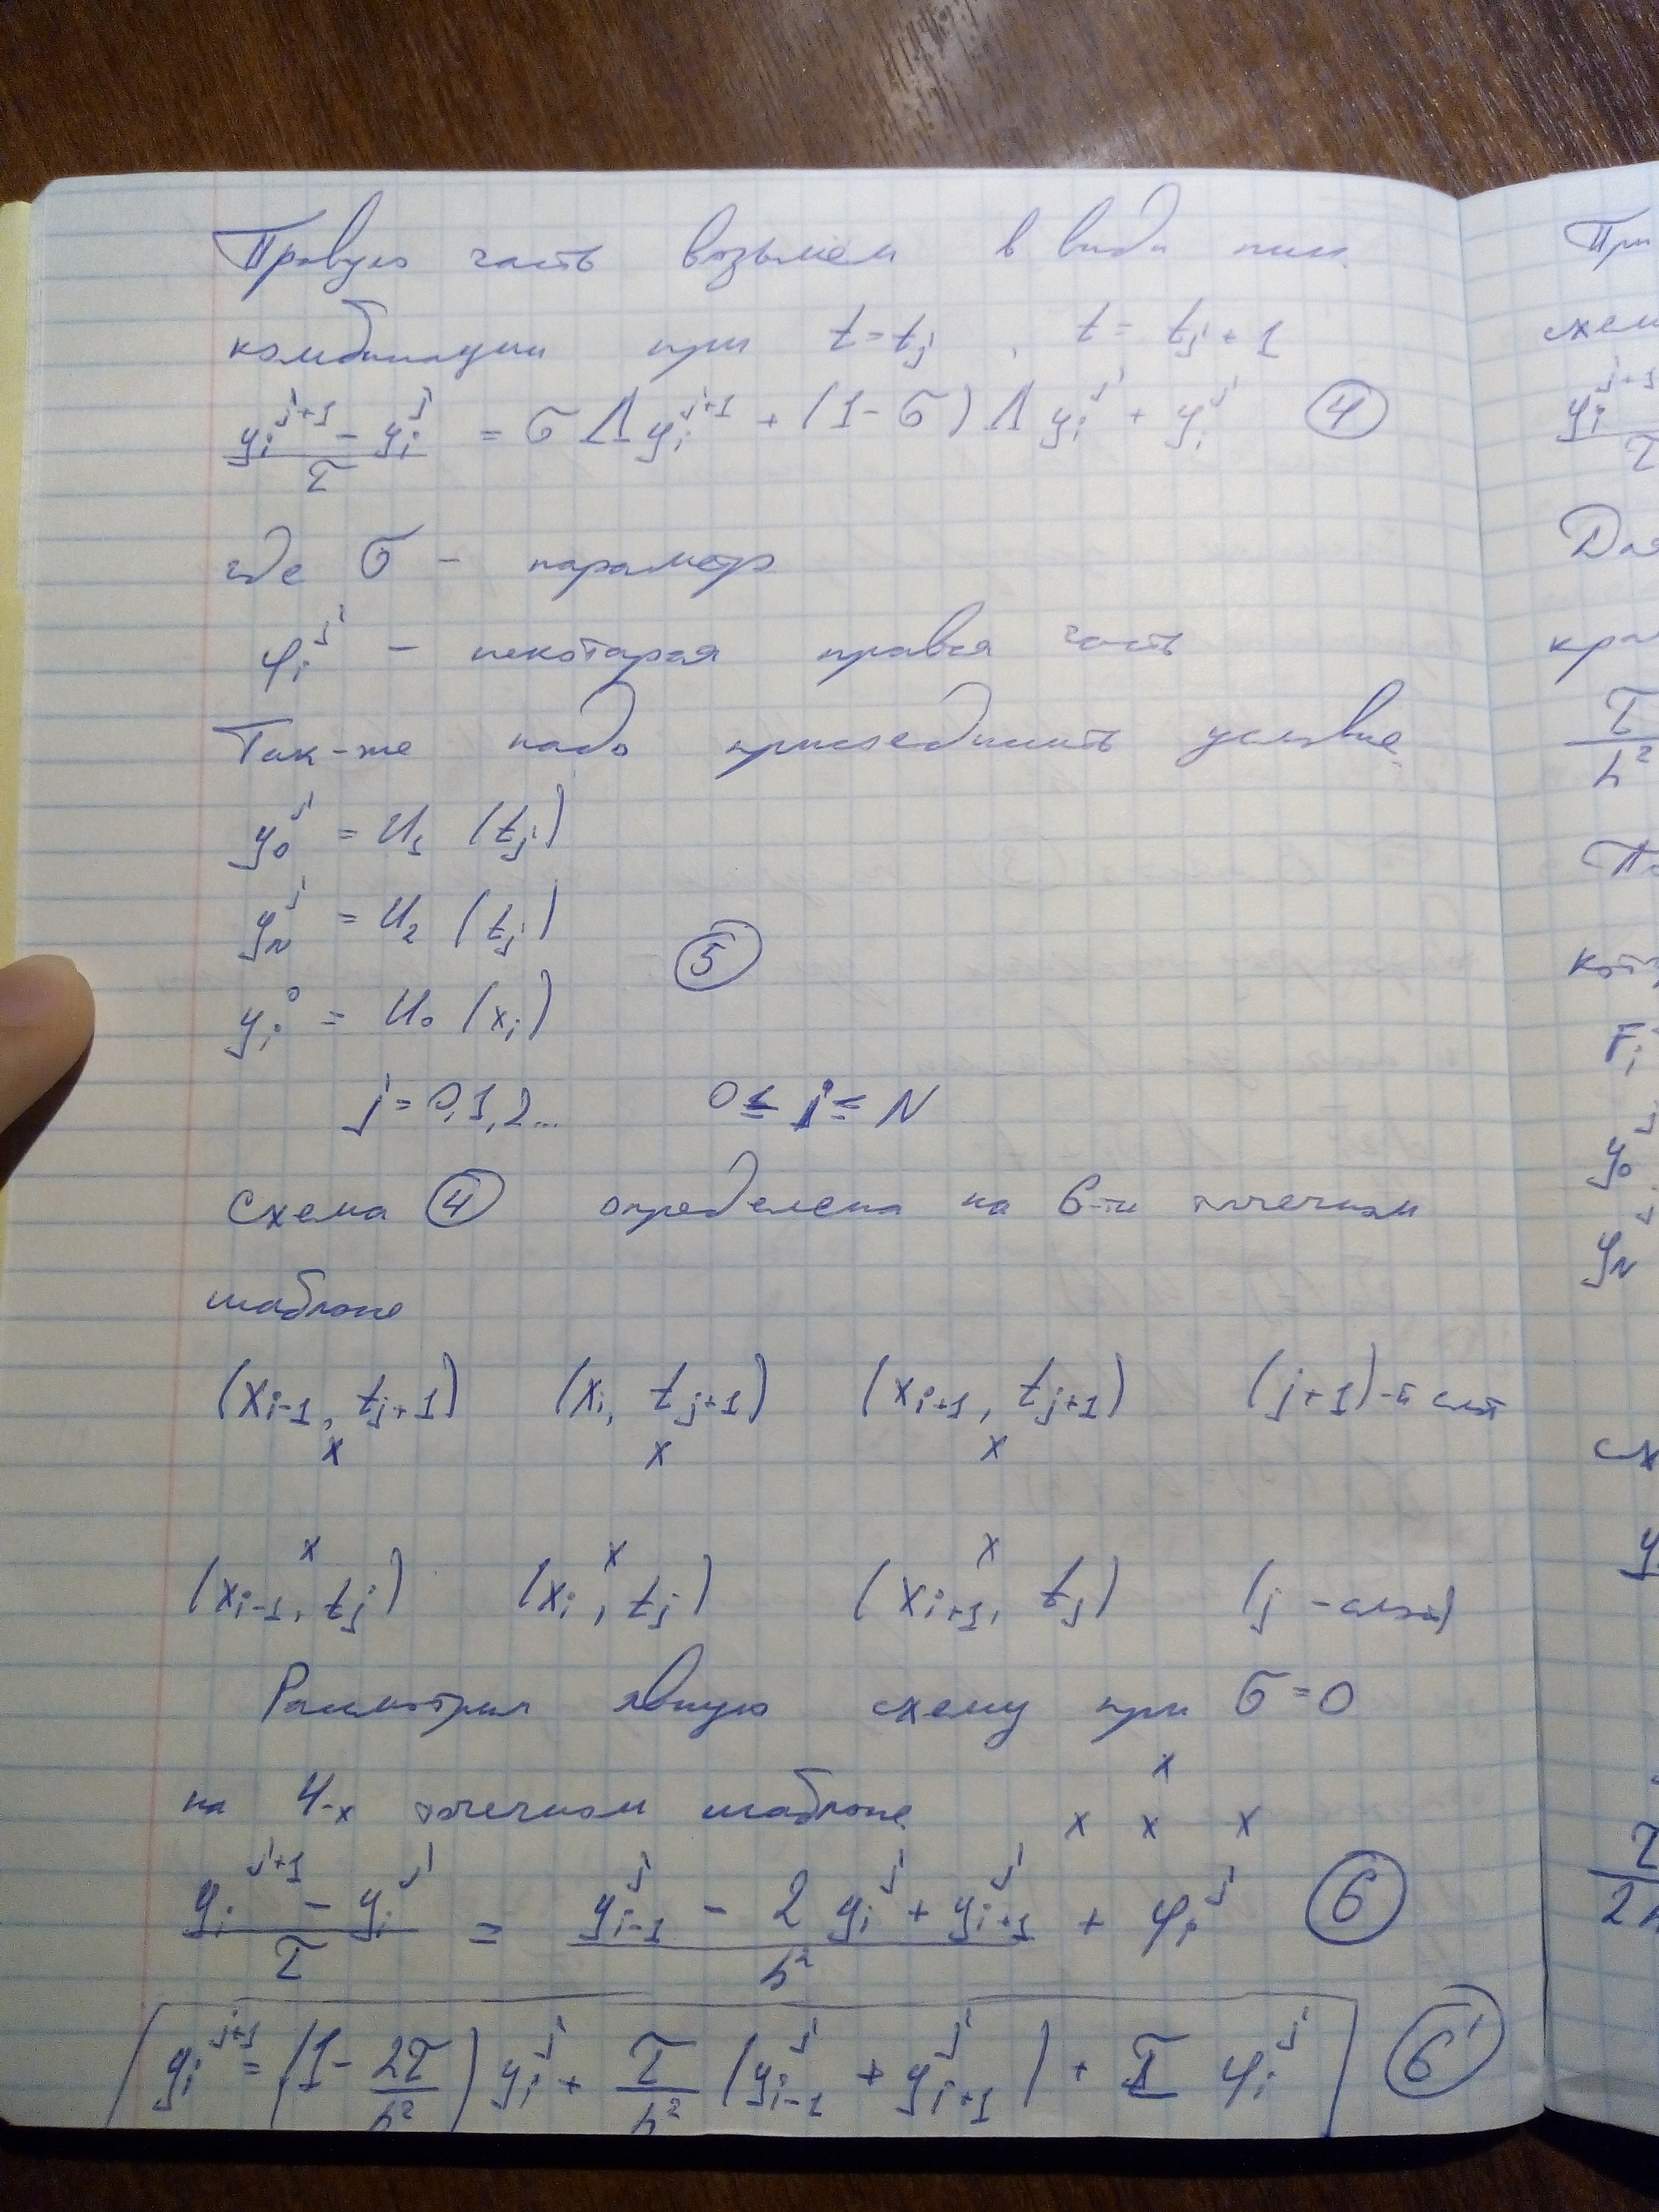 Правую часть возьмем в виде лин.
комбинации при t = tⱼ , t = tⱼ + 1
(yᵢ^{j+1} - yᵢ^{j}) / τ = σ Λ yᵢ^{j+1} + (1 - σ) Λ yᵢ^{j} + yᵢ^{j} (4)
где σ - параметр
φᵢ^{j} - некоторая правая часть
Так-же надо присоединить условие.
y₀^{j} = u₁ (tⱼ)
y_N^{j} = u₂ (tⱼ)
(5)
yᵢ^{0} = u₀ (xᵢ)
j = 0,1,2... 0 ≤ i ≤ N
Схема (4) определена на 6-ти точечном
шаблоне
(x_{i-1}, t_{j+1}) (xᵢ, t_{j+1}) (x_{i+1}, t_{j+1}) (j+1)-й слой
x x x
x x x
(x_{i-1}, tⱼ) (xᵢ, tⱼ) (x_{i+1}, tⱼ) (j - слой)
Рассмотрим явную схему при σ = 0
x
на 4-х точечном шаблоне x x x
(yᵢ^{j+1} - yᵢ^{j}) / τ = (y_{i-1}^{j} - 2 yᵢ^{j} + y_{i+1}^{j}) / h² + φᵢ^{j} (6)
yᵢ^{j+1} = (1 - 2τ/h²) yᵢ^{j} + τ/h² (y_{i-1}^{j} + y_{i+1}^{j}) + τ φᵢ^{j} (6')
При
схем
yᵢ^{j+1}
τ
Для
кра
τ
h²
Fᵢ
y₀^{j}
y_N^{j}
сх
τ